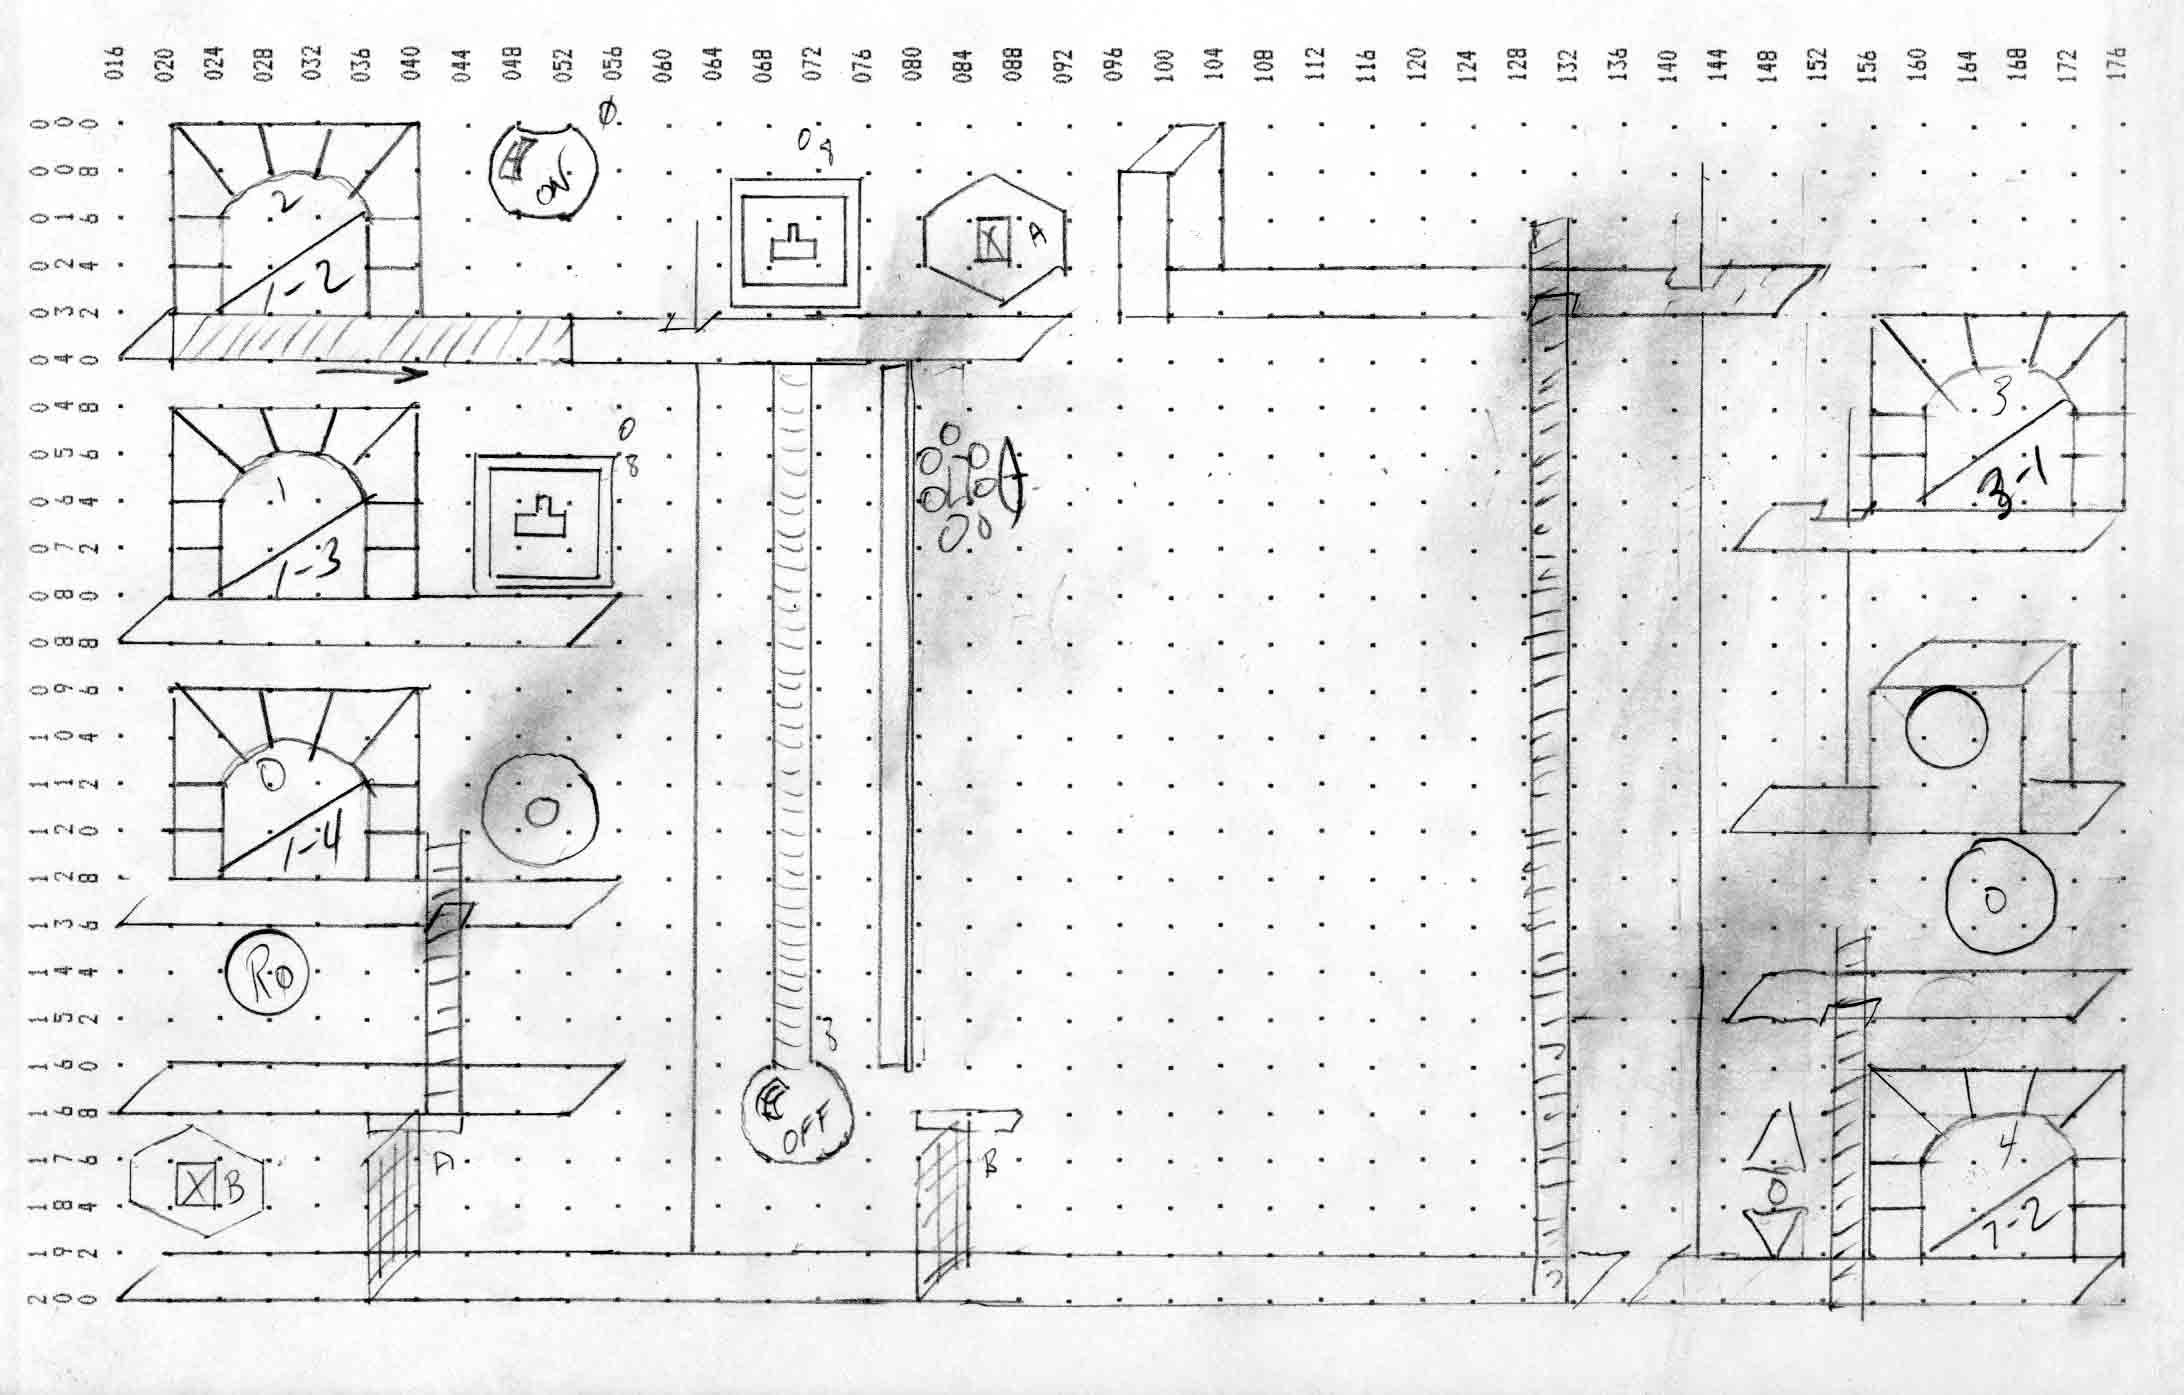 016 020 024 028 032 036 040 044 048 052 056 060 064 068 072 076 080 084 088 092 096 100 104 108 112 116 120 124 128 132 136 140 144 148 152 156 160 164 168 172 176
000
008
016
024
032
040
048
056
064
072
080
088
096
104
112
120
128
136
144
152
160
168
176
184
192
200
2
1-2
ON
Ø
0
8
X A
1
1-3
0
8
3
3-1
0
1-4
0
RØ
0
3
OFF
X B
A
B
0
4